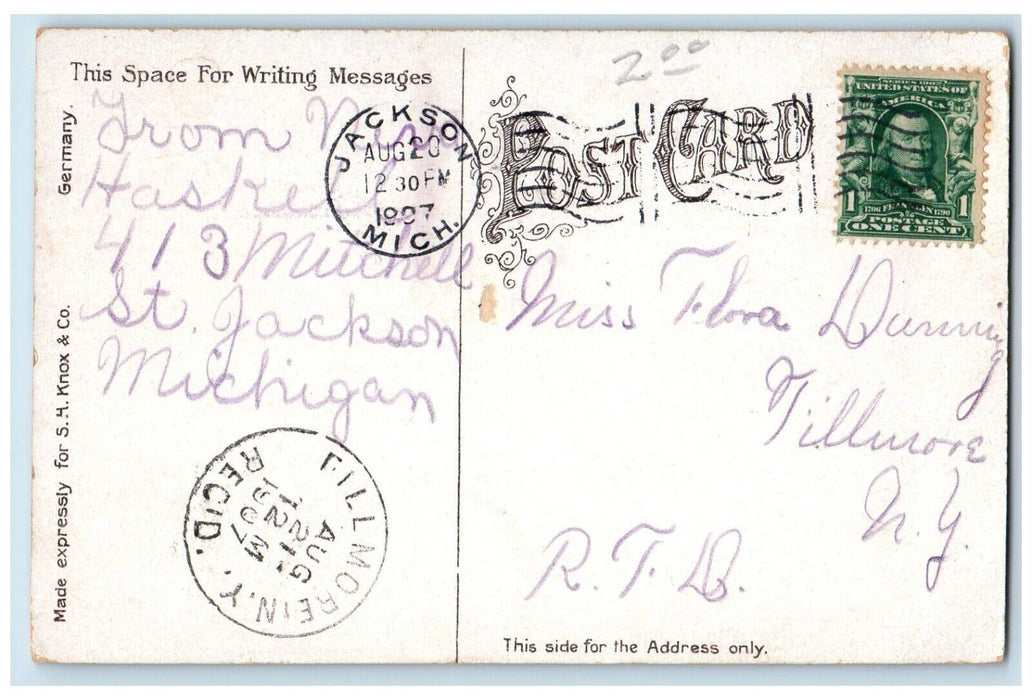 This Space For Writing Messages
Germany.
Made expressly for S. H. Knox & Co.
From
Haskell
413 Mitchell
St. Jackson
Michigan
JACKSON
AUG 20
12 30 PM
1907
MICH.
POST CARD
2 00
SERIES 1902
UNITED STATES OF
AMERICA
1 1706 FRANKLIN 1790 1
POSTAGE
ONE CENT
Miss Flora Dunning
Fillmore
N.Y.
R. F. D.
FILLMORE, N.Y.
AUG
21
12 M
1907
REC'D.
This side for the Address only.